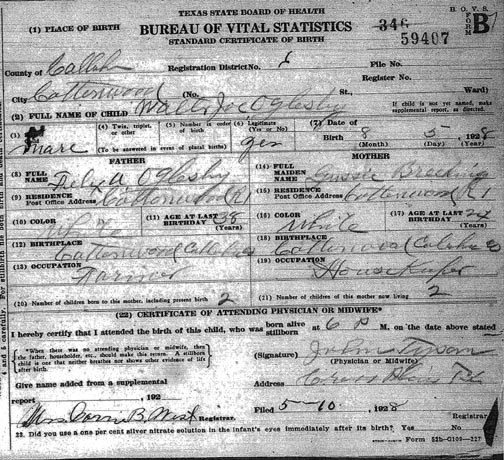 TEXAS STATE BOARD OF HEALTH
B. O. V. S.
(1) PLACE OF BIRTH
BUREAU OF VITAL STATISTICS
346
FORM B
STANDARD CERTIFICATE OF BIRTH
59407
County of Callahan
Registration District No.
File No.
Register No.
City Cottonwood (No. St., Ward)
(2) FULL NAME OF CHILD Joe Oglesby
If child is not yet named, make supplemental report, as directed.
(4) Twin, triplet, or other
(5) Number in order of birth
(6) Legitimate (Yes or No) yes
(7) Date of Birth 8 5 1928
male
(To be answered in event of plural births)
(Month) (Day) (Year)
FATHER
MOTHER
(8) FULL NAME Felix A Oglesby
(14) FULL MAIDEN NAME Gussie
(9) RESIDENCE Post Office Address Cottonwood (R)
(15) RESIDENCE Post Office Address Cottonwood (R
(10) COLOR White
(11) AGE AT LAST BIRTHDAY 38 (Years)
(16) COLOR White
(17) AGE AT LAST BIRTHDAY 24 (Years)
(12) BIRTHPLACE Cottonwood
(18) BIRTHPLACE Cottonwood
(13) OCCUPATION Farmer
(19) OCCUPATION House Keeper
(20) Number of children born to this mother, including present birth 2
(21) Number of children of this mother now living 2
(22) CERTIFICATE OF ATTENDING PHYSICIAN OR MIDWIFE*
I hereby certify that I attended the birth of this child, who was born alive stillborn at 6 P M. on the date above stated
*When there was no attending physician or midwife, then the father, householder, etc., should make this return. A stillborn child is one that neither breathes nor shows other evidence of life after birth.
(Signature)
(Physician or Midwife)
Given name added from a supplemental
Address Cross Plains
report , 192
Mrs B. West Registrar.
Filed 5-10, 1928
Registrar
23. Did you use a one per cent silver nitrate solution in the infant's eyes immediately after its birth? Yes No
Form